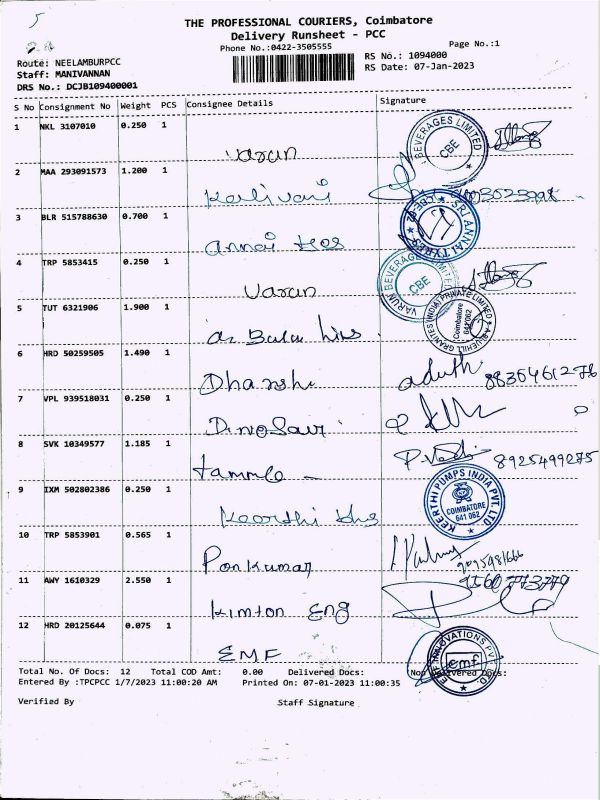 5
THE PROFESSIONAL COURIERS, Coimbatore
Delivery Runsheet - PCC
Phone No.:0422-3505555
Page No.:1
Route: NEELAMBURPCC
RS No.: 1094000
Staff: MANIVANNAN
RS Date: 07-Jan-2023
DRS No.: DCJB109400001
S No Consignment No Weight PCS Consignee Details Signature
1 NKL 3107010 0.250 1
Varun
BEVERAGES LIMITED CBE
2 MAA 293091573 1.200 1
Kalivani
3 BLR 515788630 0.700 1
Annai
SRI ANNAI TYRES CBE-62
4 TRP 5853415 0.250 1
Varun
VARUN BEVERAGES LIMITED CBE
5 TUT 6321906 1.900 1
BLUEHILL GRANITES (INDIA) PRIVATE LIMITED Coimbatore 641 062
6 HRD 50259505 1.490 1
Dharshi
7 VPL 939518031 0.250 1
Dinosavi
8 SVK 10349577 1.185 1
8925499275
9 IXM 502802386 0.250 1
Keerthi
KEERTHI PUMPS INDIA PVT. LTD COIMBATORE 641 062
10 TRP 5853901 0.565 1
Ponkumar
11 AWY 1610329 2.550 1
Kimton Eng
12 HRD 20125644 0.075 1
EMF
EMF INNOVATIONS PVT. LTD. emf
Total No. Of Docs: 12 Total COD Amt: 0.00 Delivered Docs: Non Delivered Docs:
Entered By :TPCPCC 1/7/2023 11:00:20 AM Printed On: 07-01-2023 11:00:35
Verified By Staff Signature